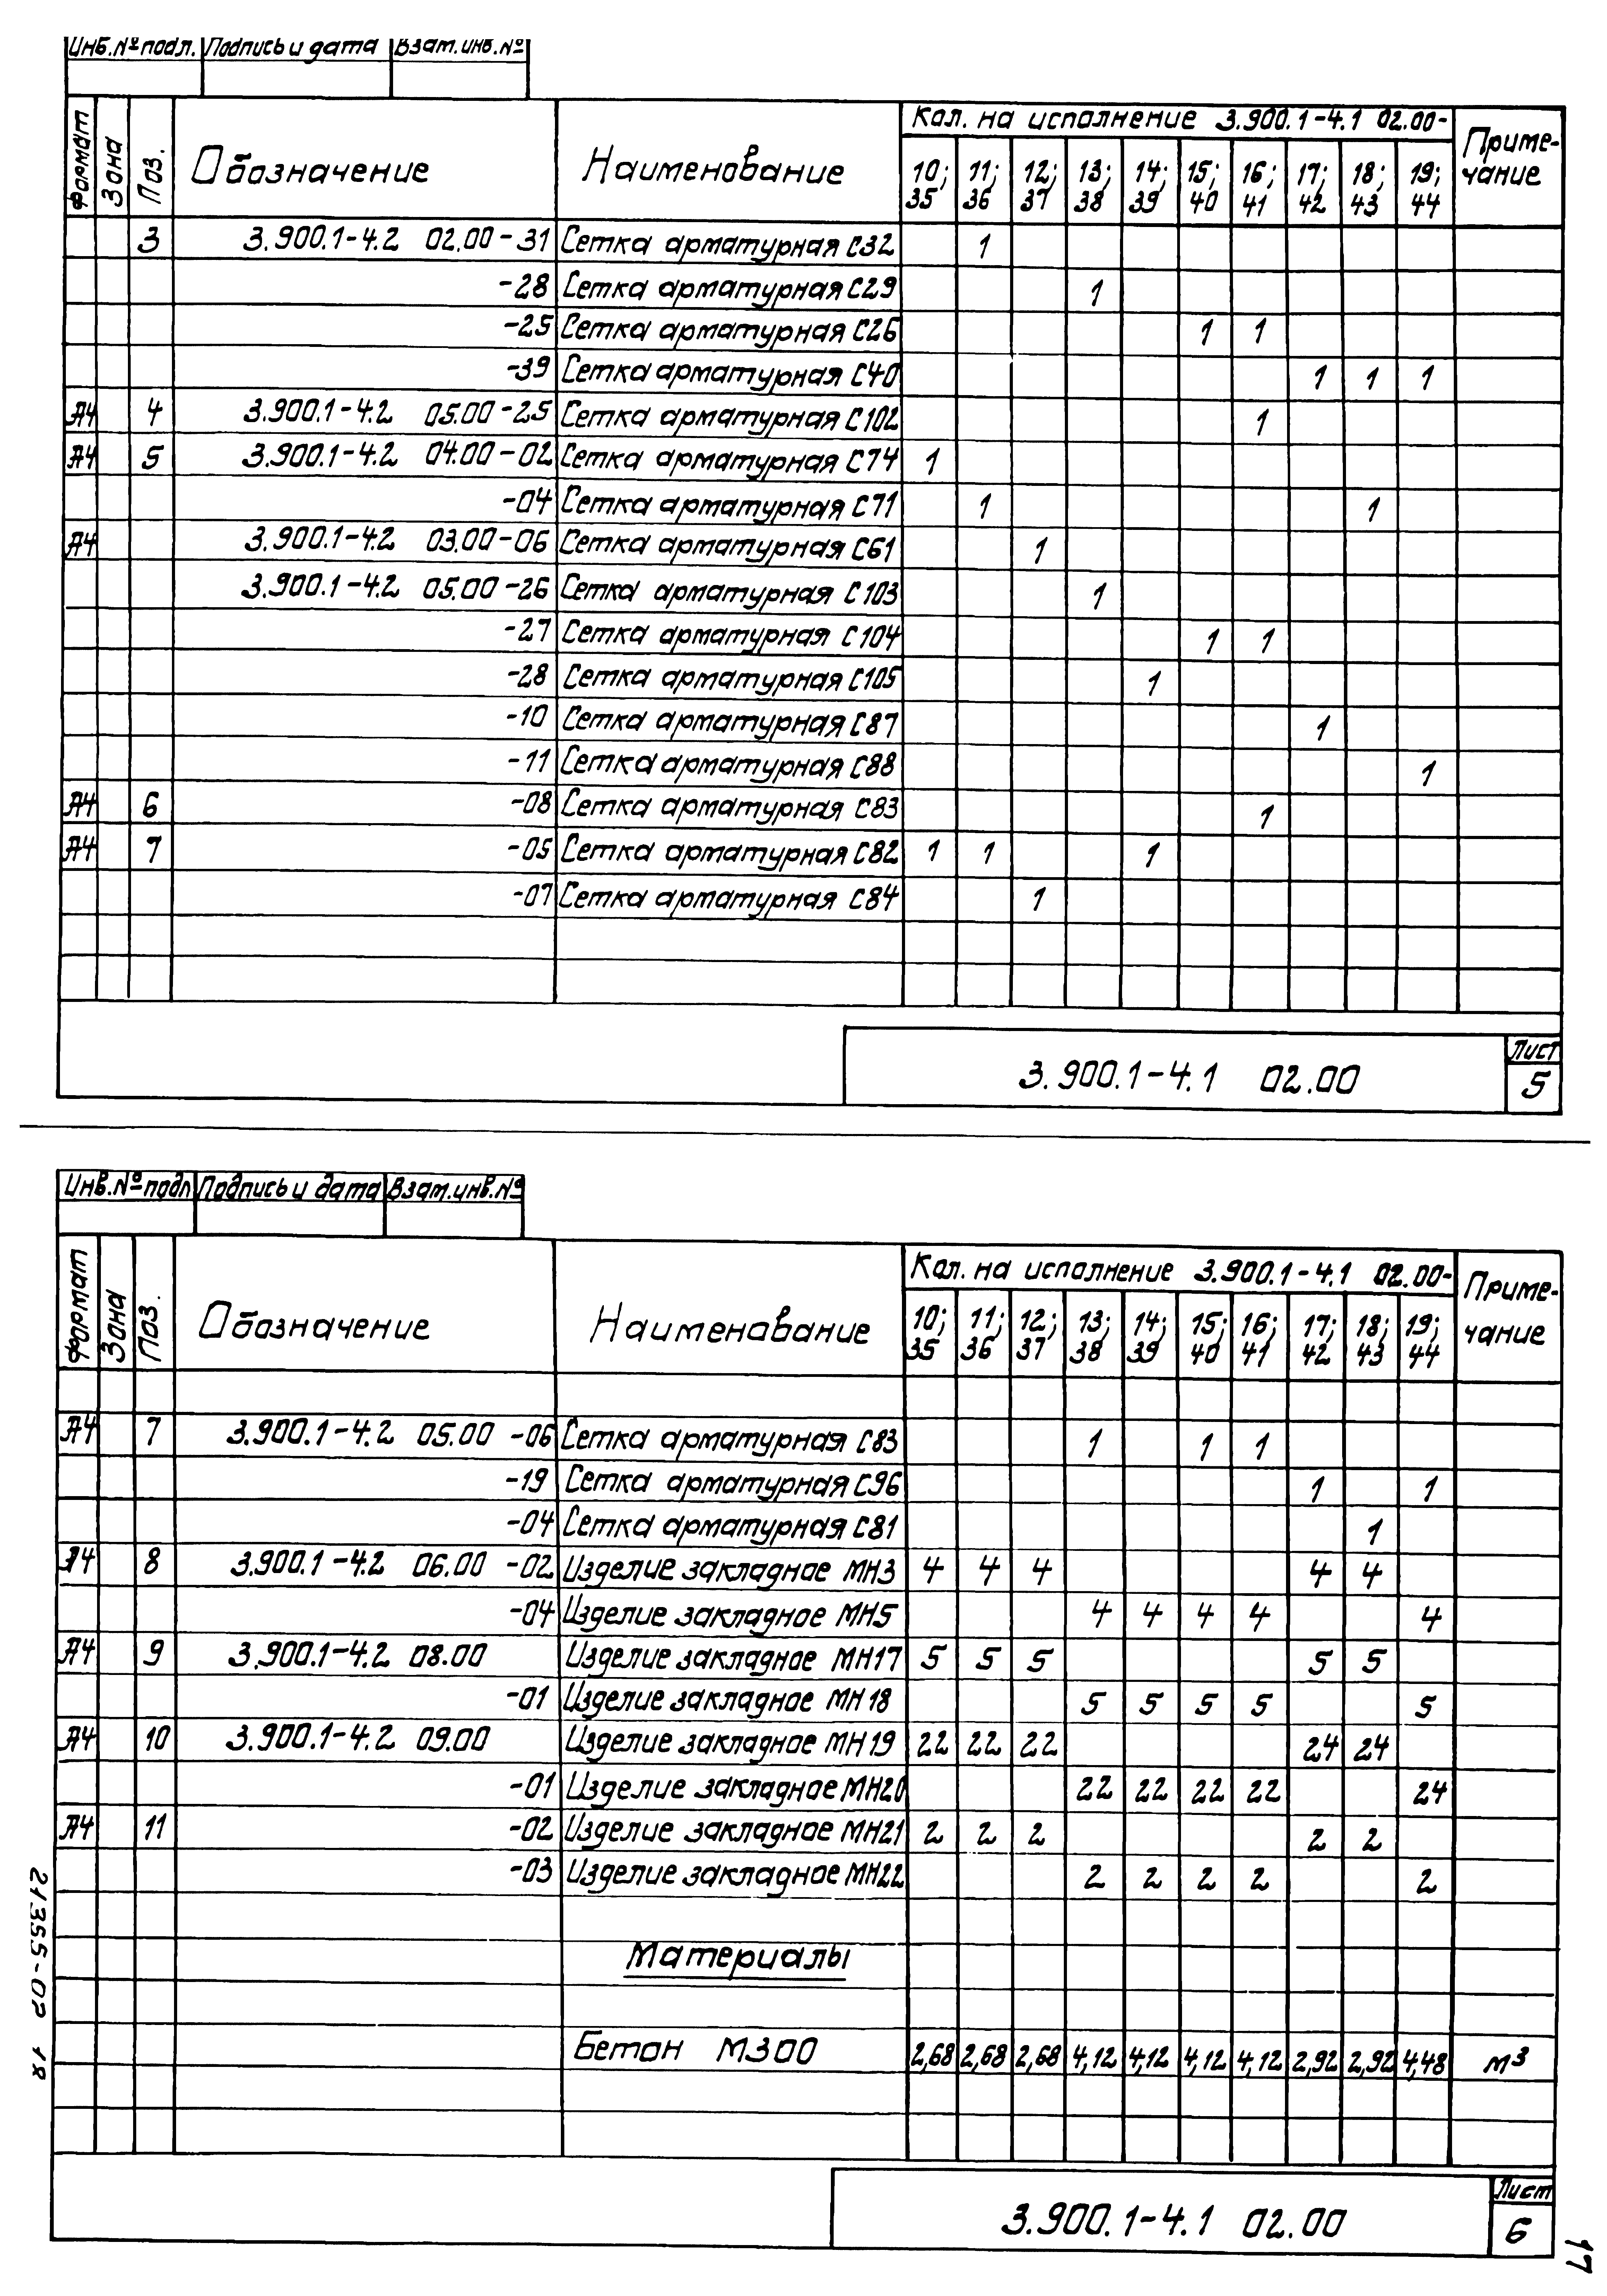 Инв.№ подл. Подпись и дата Взам.инв.№
Формат Зона Поз. Обозначение Наименование Кол. на исполнение 3.900.1-4.1 02.00- Приме-
чание
10; 11; 12; 13; 14; 15; 16; 17; 18; 19;
35 36 37 38 39 40 41 42 43 44
3 3.900.1-4.2 02.00-31 Сетка арматурная С32 1
-28 Сетка арматурная С29 1
-25 Сетка арматурная С26 1 1
-39 Сетка арматурная С40 1 1 1
А4 4 3.900.1-4.2 05.00-25 Сетка арматурная С102 1
А4 5 3.900.1-4.2 04.00-02 Сетка арматурная С74 1
-04 Сетка арматурная С71 1 1
А4 3.900.1-4.2 03.00-06 Сетка арматурная С61 1
3.900.1-4.2 05.00-26 Сетка арматурная С103 1
-27 Сетка арматурная С104 1 1
-28 Сетка арматурная С105 1
-10 Сетка арматурная С87 1
-11 Сетка арматурная С88 1
А4 6 -08 Сетка арматурная С83 1
А4 7 -05 Сетка арматурная С82 1 1 1
-07 Сетка арматурная С84 1
3.900.1-4.1 02.00
Лист
5
Инв.№ подл Подпись и дата Взам.инв.№
Формат Зона Поз. Обозначение Наименование Кол. на исполнение 3.900.1-4.1 02.00- Приме-
чание
10; 11; 12; 13; 14; 15; 16; 17; 18; 19;
35 36 37 38 39 40 41 42 43 44
А4 7 3.900.1-4.2 05.00 -06 Сетка арматурная С83 1 1 1
-19 Сетка арматурная С96 1 1
-04 Сетка арматурная С81 1
А4 8 3.900.1-4.2 06.00 -02 Изделие закладное МН3 4 4 4 4 4
-04 Изделие закладное МН5 4 4 4 4 4
А4 9 3.900.1-4.2 08.00 Изделие закладное МН17 5 5 5 5 5
-01 Изделие закладное МН18 5 5 5 5 5
А4 10 3.900.1-4.2 09.00 Изделие закладное МН19 22 22 22 24 24
-01 Изделие закладное МН20 22 22 22 22 24
А4 11 -02 Изделие закладное МН21 2 2 2 2 2
-03 Изделие закладное МН22 2 2 2 2 2
Материалы
Бетон М300 2,68 2,68 2,68 4,12 4,12 4,12 4,12 2,92 2,92 4,48 м³
3.900.1-4.1 02.00
Лист
6
21355-02 18
17